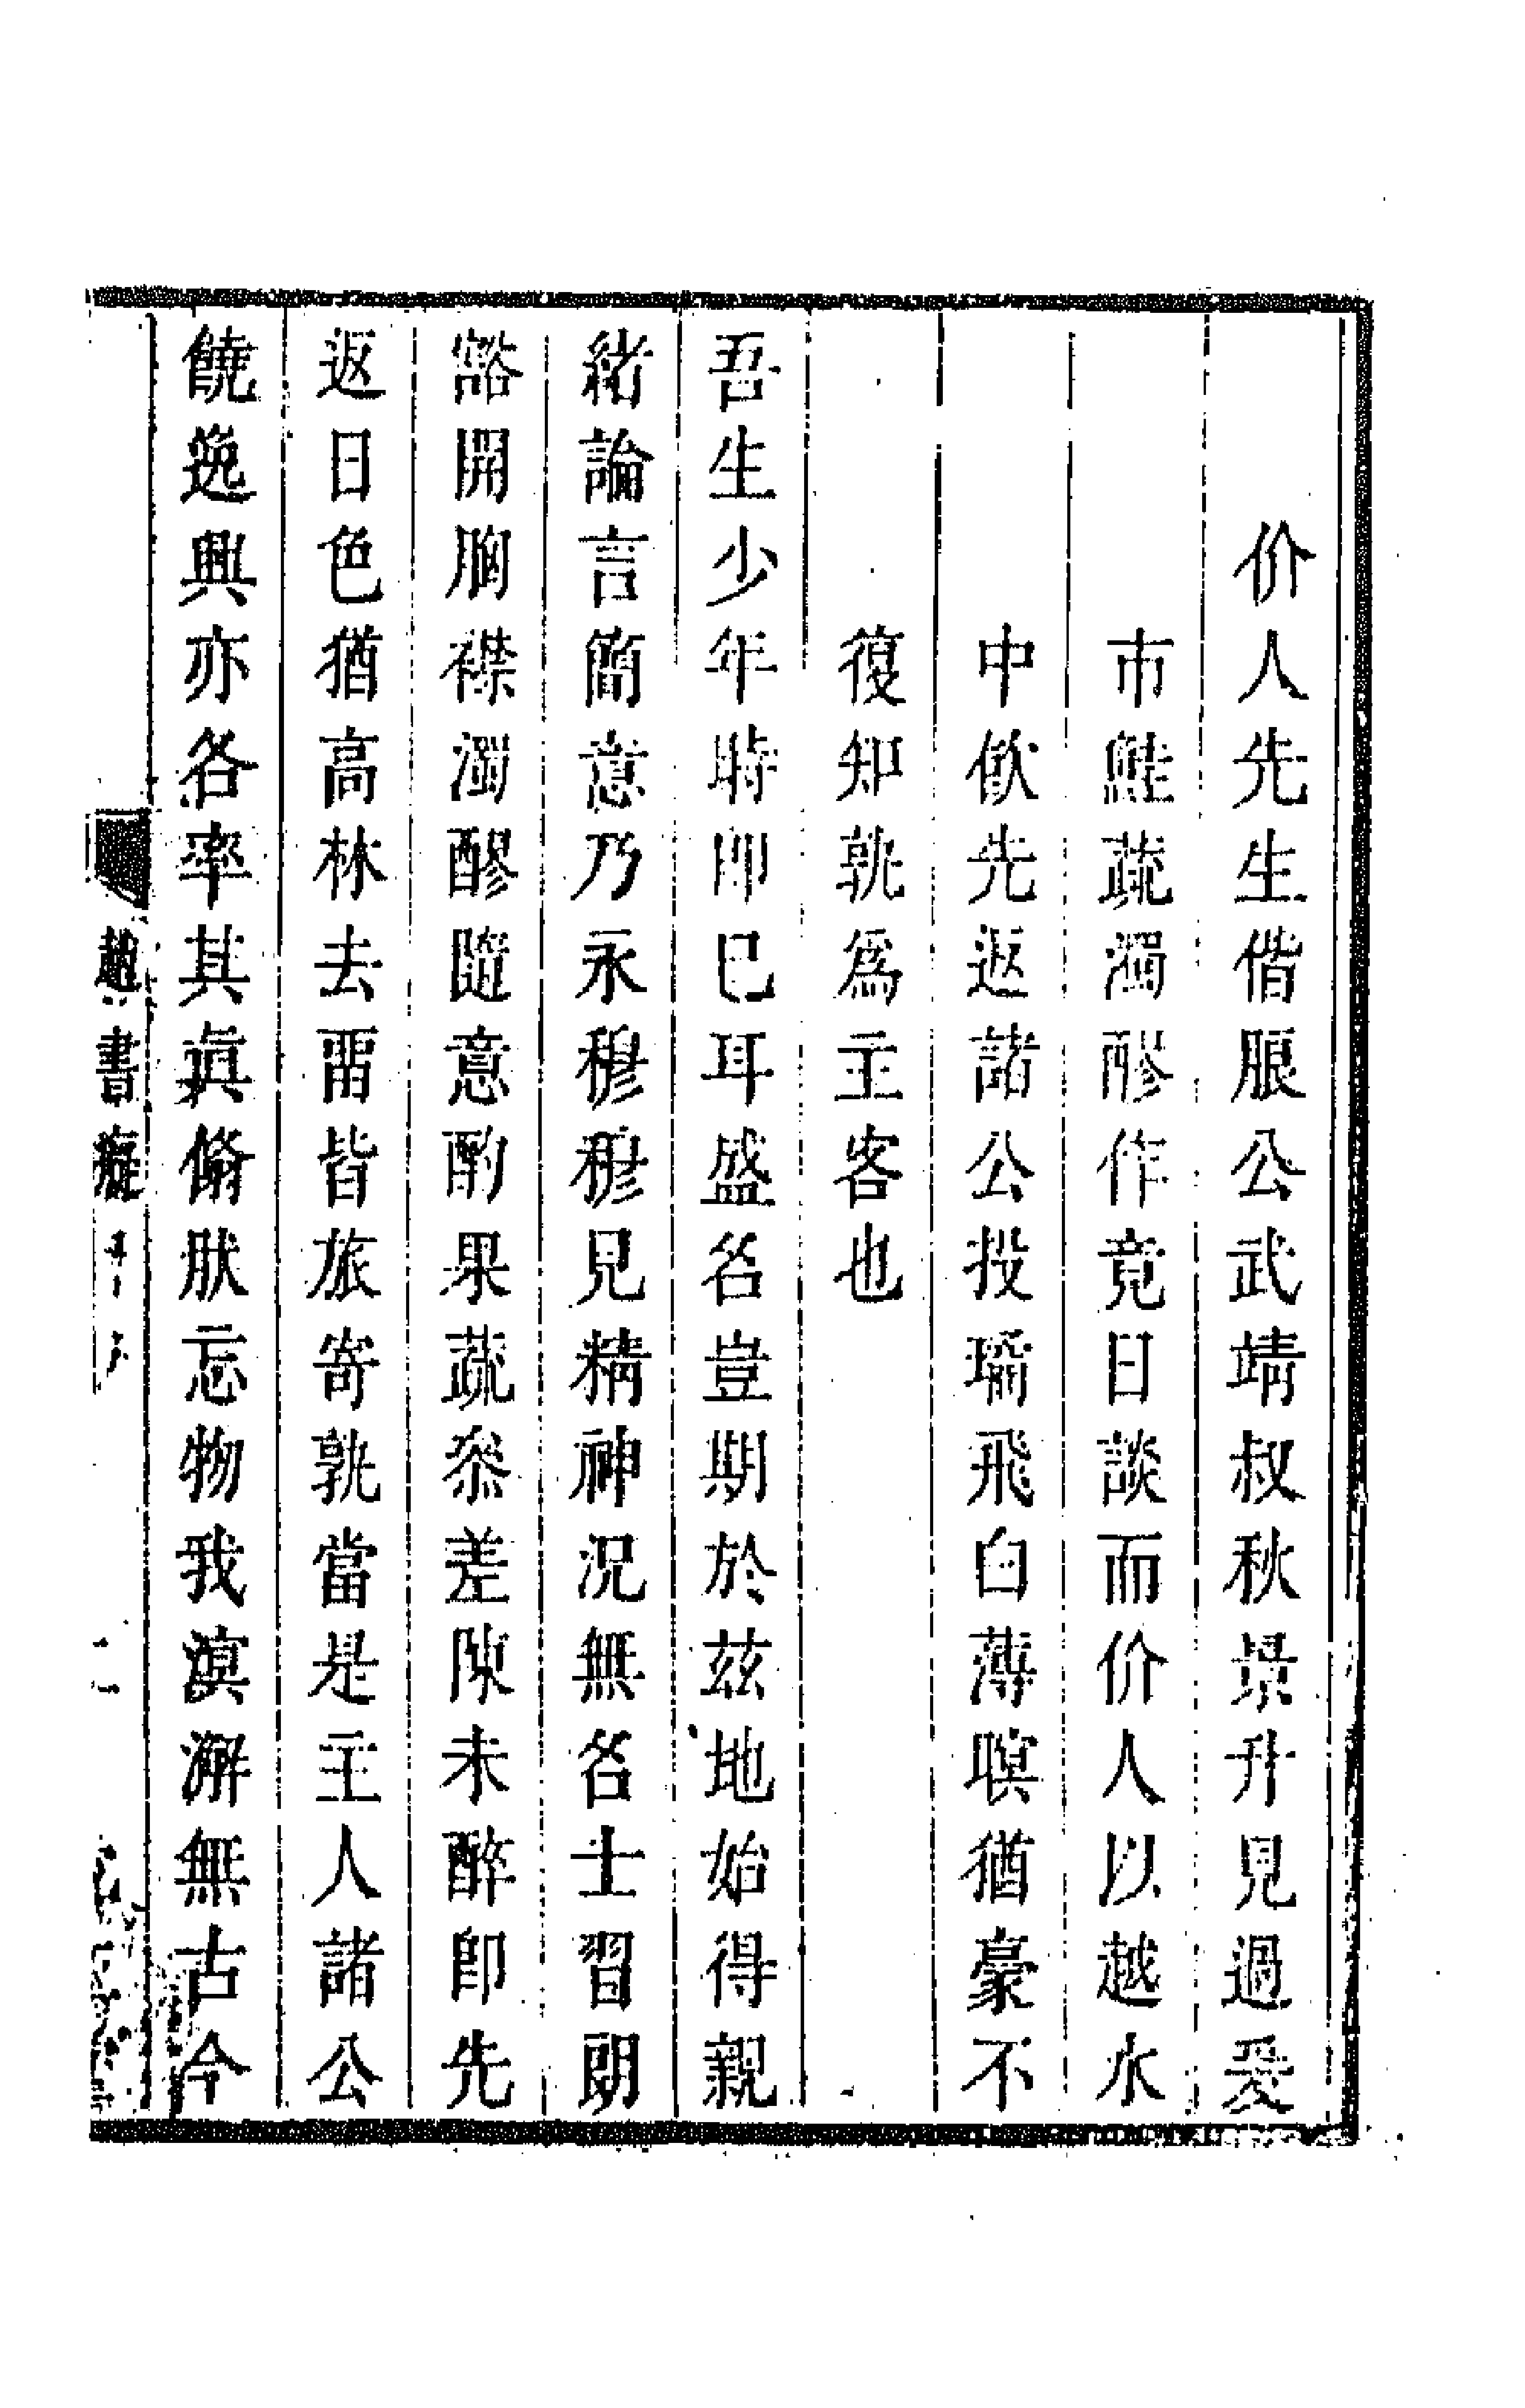 价人先生偕脤公武靖叔秋景升見過爰
市鮭蔬濁醪作竟日談而价人以越水
中飲先返諸公投璚飛白薄暝猶豪不
復知孰為主客也
吾生少年時即已耳盛名豈期於茲地始得親
緒論言簡意乃永穆穆見精神況無名士習朗
豁開胸襟濁醪隨意酌果蔬叅差陳未醉即先
返日色猶高林去畱皆旅寄孰當是主人諸公
饒逸興亦各率其眞翛肰忘物我溟澥無古今
趙書癡